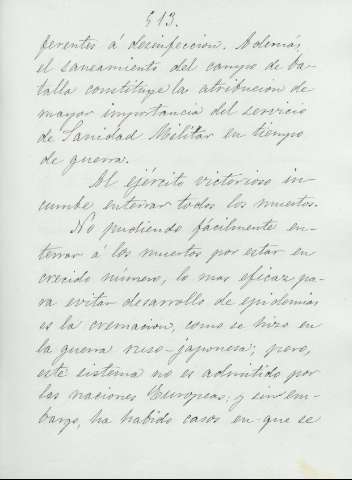 513.
ferentes á desinfeccion. Además,
el saneamiento del campo de ba-
talla constituye la atribucion de
mayor importancia del servicio
de Sanidad Militar en tiempo
de guerra.
Al ejército victorioso in-
cumbe enterrar todos los muertos.
No pudiendo fácilmente en-
terrar á los muertos por estar en
crecido número, lo mas eficaz pa-
ra evitar desarrollo de epidemias
es la cremacion, como se hizo en
la guerra ruso-japonesa; pero,
este sistema no es admitido por
las naciones Europeas; y sin em-
bargo, ha habido casos en que se